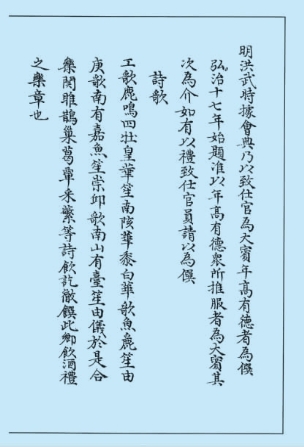 明洪武時據會典乃以致仕官為大賓年高有德者為僎
弘治十七年始題准以年高有德衆所推服者為大賓其
次為介如有以禮致仕官員請以為僎
詩歌
工歌鹿鳴四牡皇華笙南陔華黍白華歌魚鹿笙由
庚歌南有嘉魚笙崇邱歌南山有臺笙由儀於是合
樂関雎鵲巢葛覃采蘩等詩飲訖饌此鄉飲酒禮
之樂章也